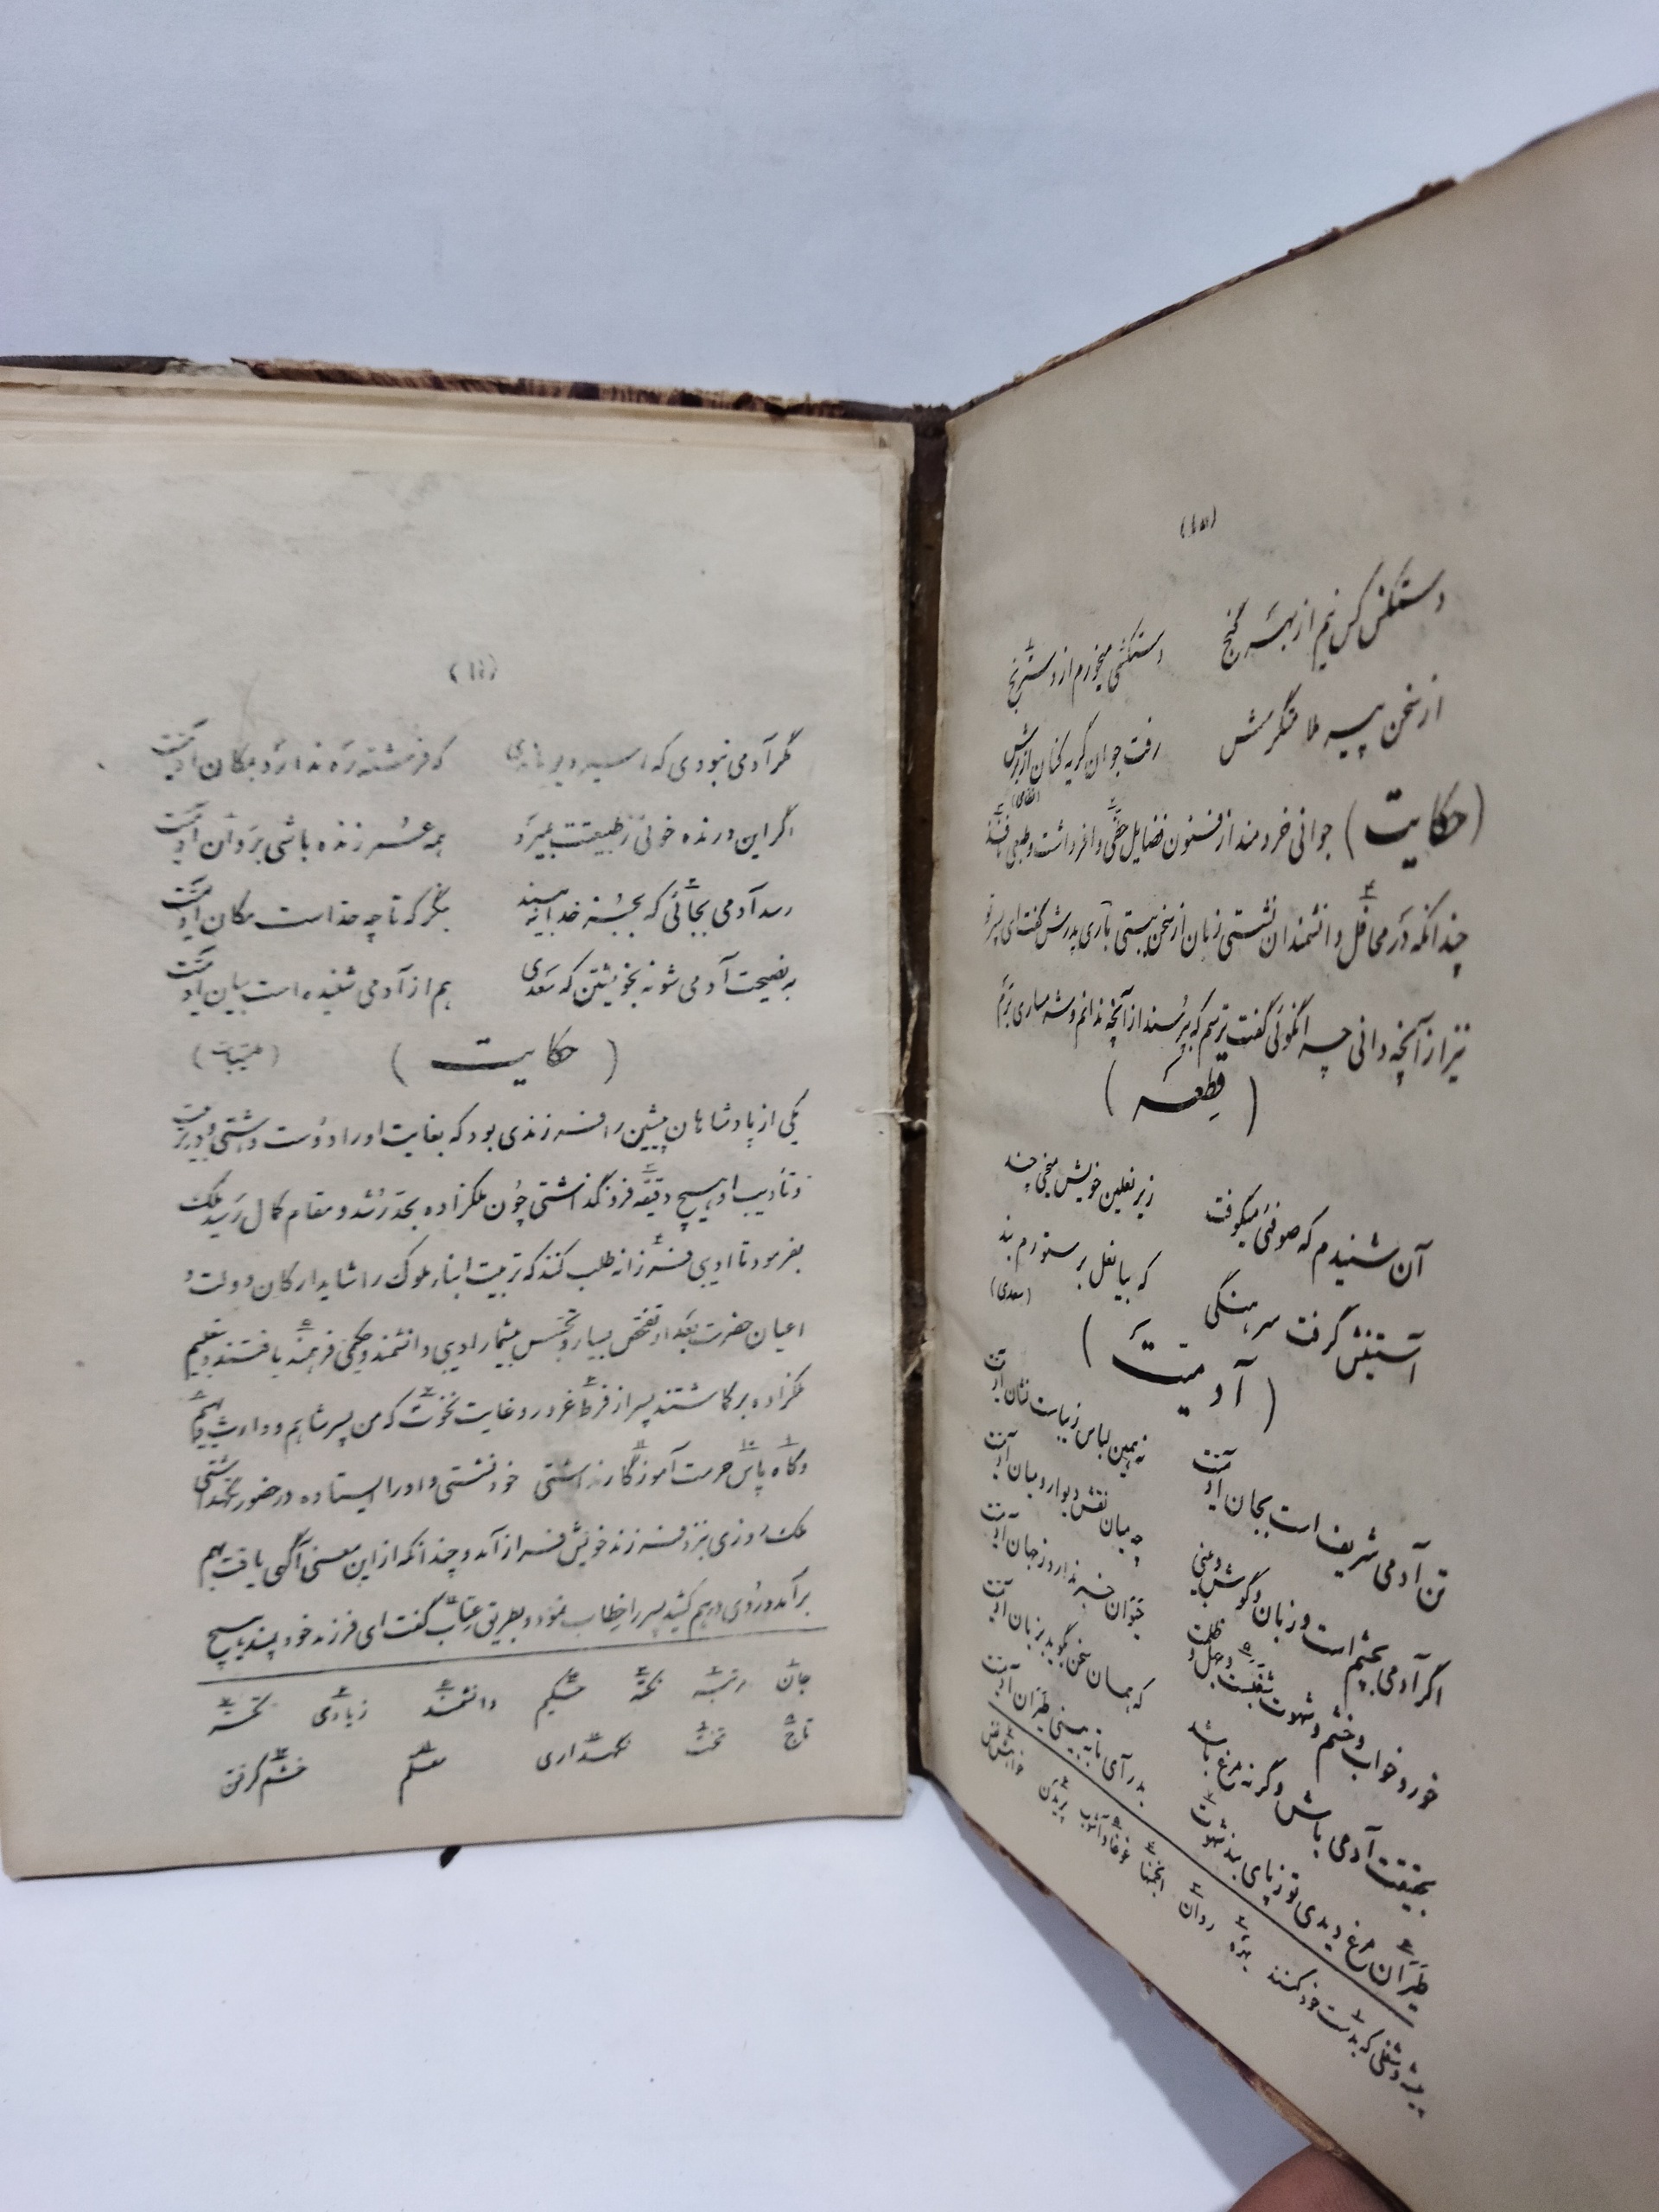 (۱۵)
دستکش کس نیم از بهر گنج دستکشی میخورم از دسترنج
از سخن پیر ملامتگرش رفت جوان گریه کنان از برش
(نظامی)
(حکایت) جوانی خردمند از فنون فضایل حظی وافر داشت و طبعی نافذ
چندانکه در محافل دانشمندان نشستی زبان از سخن ببستی باری پدرش گفت ای پسر تو
نیز از آنچه دانی چرا نگوئی گفت ترسم که بپرسند از آنچه ندانم و شرمساری برم
(قطعه)
آن شنیدم که صوفئی میکوفت زیر نعلین خویش میخی چند
آستینش گرفت سرهنگی که بیا نعل بر ستورم بند
(سعدی)
(آدمیت)
تن آدمی شریف است بجان آدمیت نه همین لباس زیباست نشان آدمیت
اگر آدمی بچشم است و زبان و گوش و بینی چه میان نقش دیوار و میان آدمیت
خور و خواب و خشم و شهوت شغبست و جهل و ظلمت حیوان خبر ندارد ز جهان آدمیت
بحقیقت آدمی باش وگرنه مرغ باشد که همان سخن بگوید بزبان آدمیت
طیران مرغ دیدی تو ز پای بند شهوت بدر آی تا به بینی طیران آدمیت
پیشه و شغلی که بدست خود کنند بهره روان انجمنها غوغا و آشوب پریدن خواهش نفس
(۱۶)
مگر آدمی نبودی که اسیر دیو ماندی که فرشته ره ندارد بمکان آدمیت
اگر این درنده خوئی ز طبیعتت بمیرد همه عمر زنده باشی بروان آدمیت
رسد آدمی بجائی که بجز خدا نبیند بنگر که تا چه حد است مکان آدمیت
به نصیحت آدمی شو نه بخویشتن که سعدی هم از آدمی شنیده است بیان آدمیت
(حکایت) (طیبات)
یکی از پادشاهان پیشین را فرزندی بود که بغایت او را دوست داشتی و در تربیت
و تأدیب او هیچ دقیقه فرو نگذاشتی چون ملکزاده بحد رشد و مقام کمال رسید ملک
بفرمود تا ادیبی فرزانه طلب کنند که تربیت ابناء ملوک را شاید ارکان دولت و
اعیان حضرت بعد از تفحص بسیار و تجسس بیشمار ادیبی دانشمند و حکیمی فرهمند یافتند و بتعلیم
ملکزاده برگماشتند پسر از فرط غرور و غایت نخوت که من پسر شاهم و وارث دیهیم
و گاه پاس حرمت آموزگار نداشتی خود نشستی و او را ایستاده در حضور نگهداشتی
ملک روزی بنزد فرزند خویش فراز آمد و چندانکه از این معنی آگهی یافت بهم
برآمد و روی درهم کشید پسر را خطاب نمود و بطریق عتاب گفت ای فرزند خودپسند هیچ
جان رتبه نکته حکیم دانشمند زیادی تکبر
تاج تخت نگهداری معلم خشم گرفتن